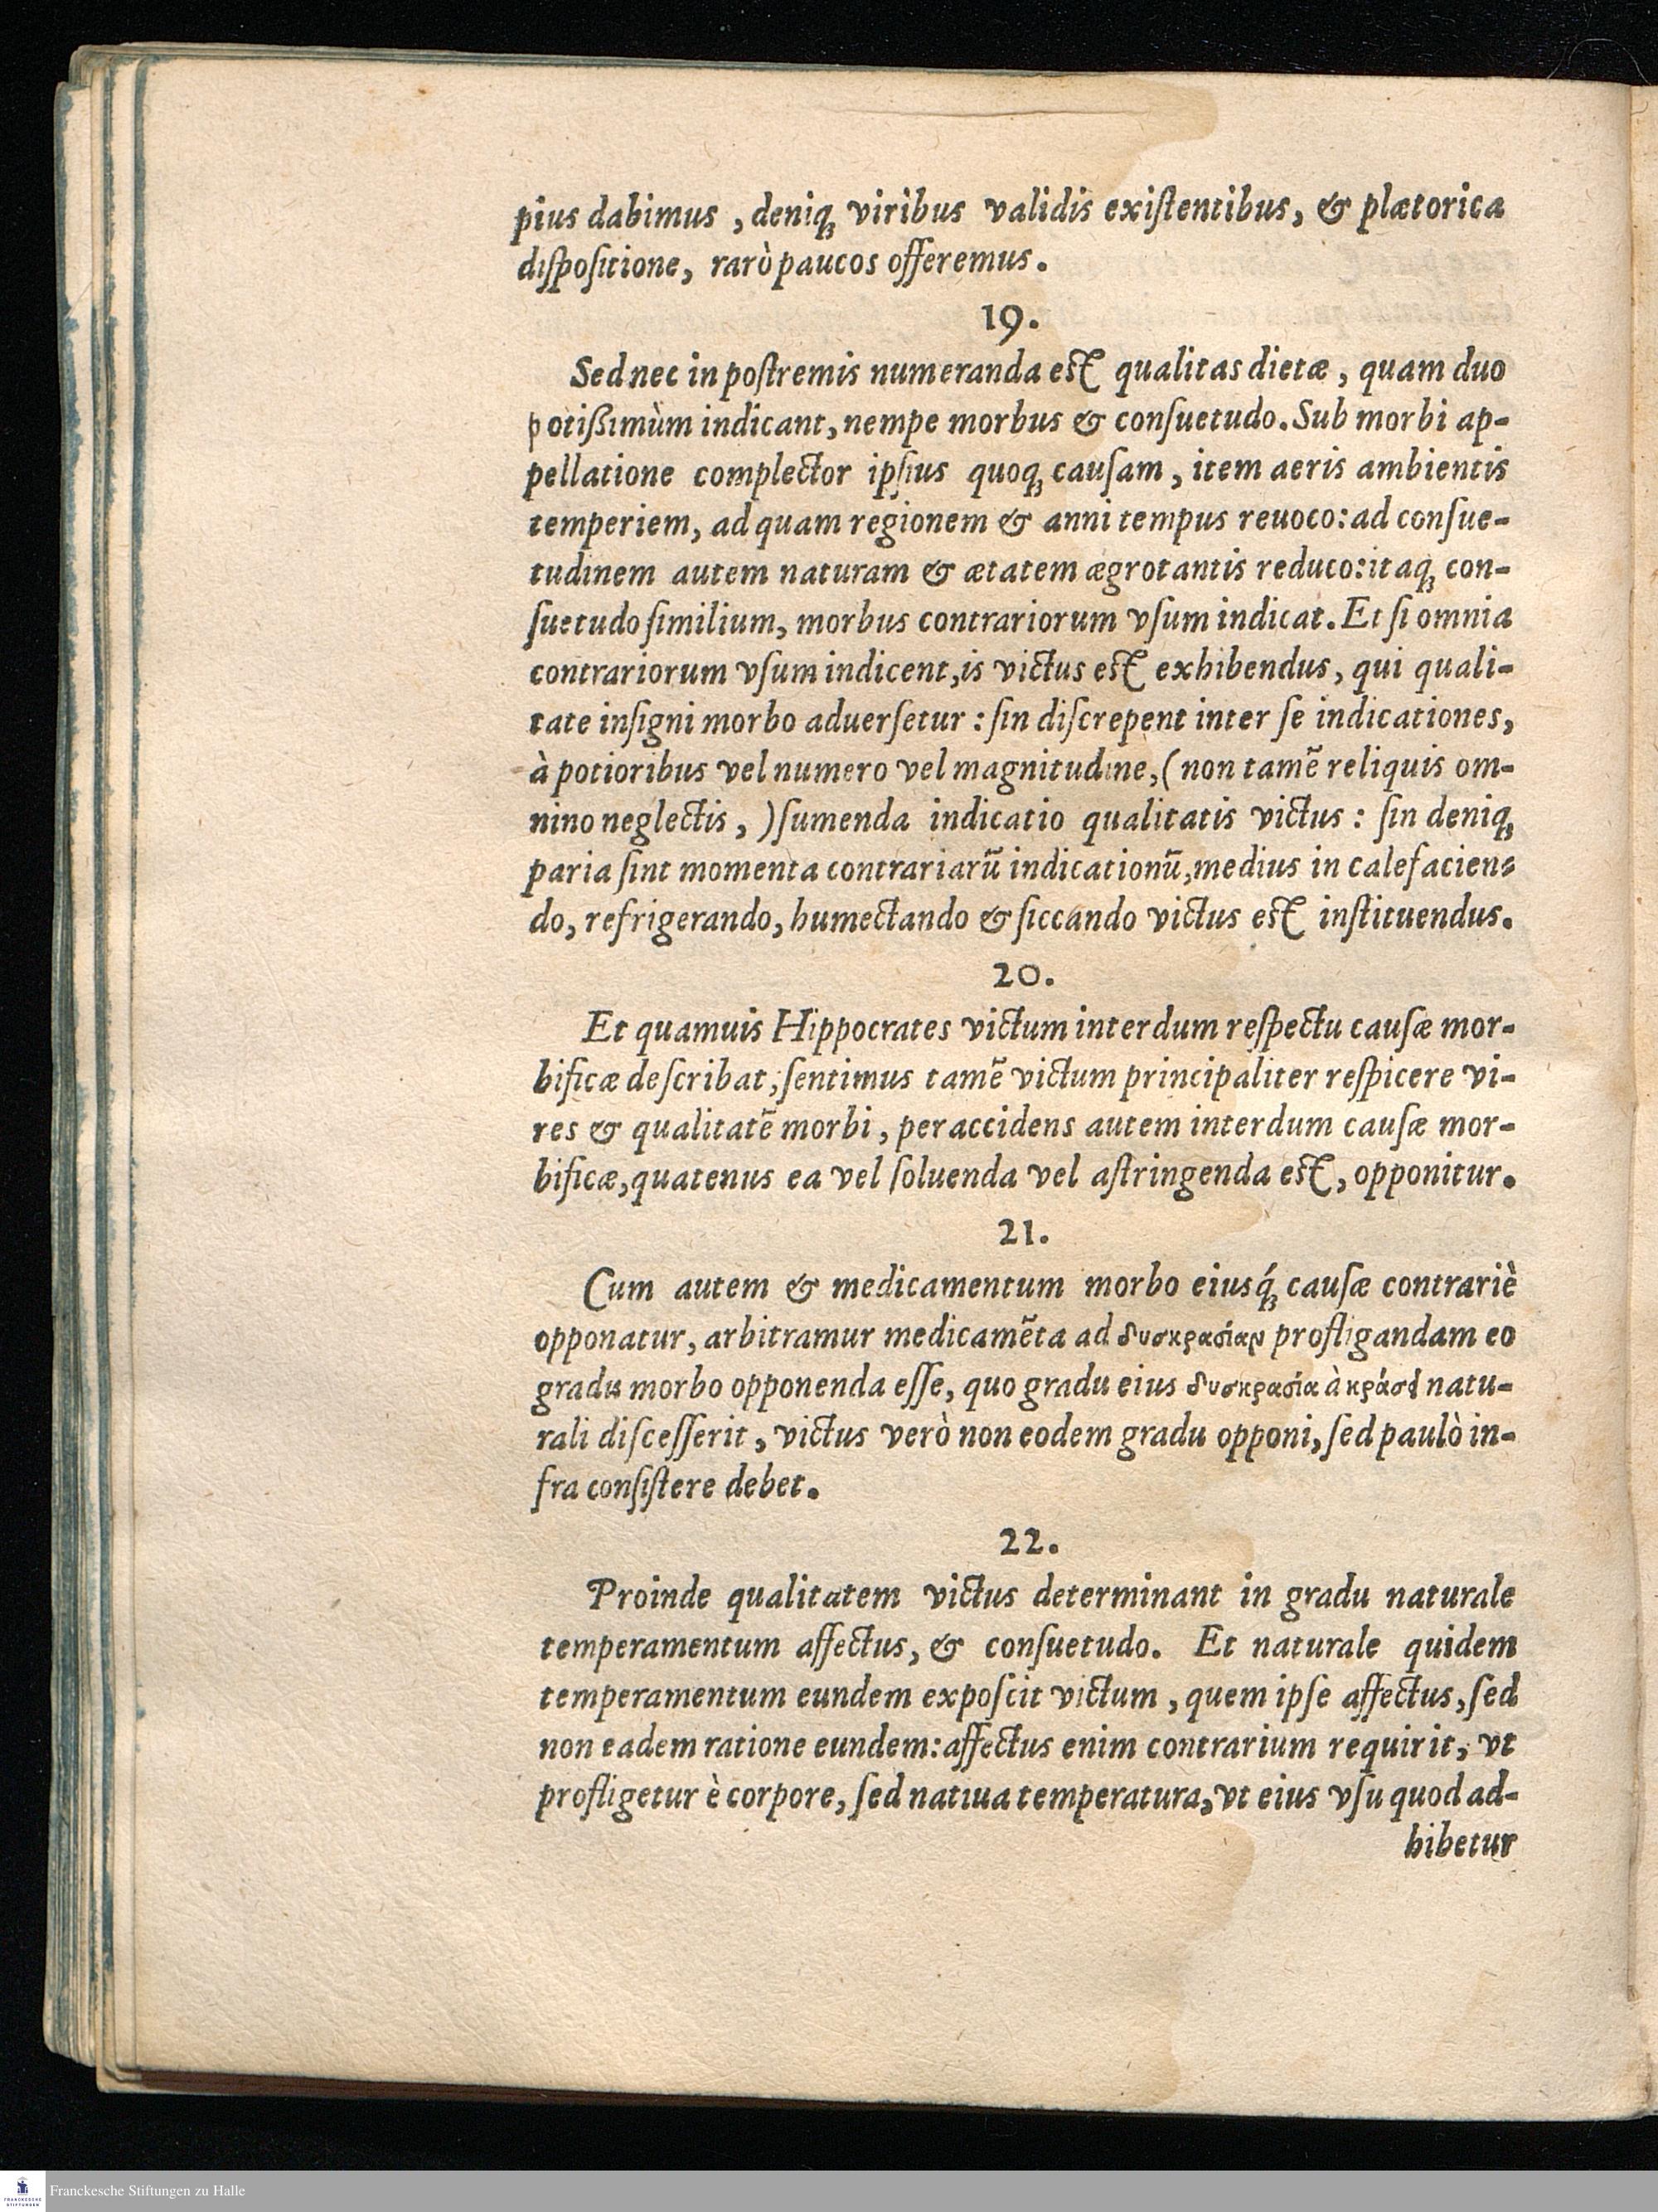 pius dabimus, deniq́ꝫ viribus validis exiſtentibus, & plætorica
diſpoſitione, rarò paucos offeremus.
19.
Sed nec in poſtremis numeranda eſt qualitas dietæ, quam duo
potißimùm indicant, nempe morbus & conſuetudo. Sub morbi ap-
pellatione complector ipſius quoqꝫ cauſam, item aeris ambientis
temperiem, ad quam regionem & anni tempus reuoco: ad conſue-
tudinem autem naturam & ætatem ægrotantis reduco: itaqꝫ con-
ſuetudo ſimilium, morbus contrariorum vſum indicat. Et ſi omnia
contrariorum vſum indicent, is victus eſt exhibendus, qui quali-
tate inſigni morbo aduerſetur: ſin diſcrepent inter ſe indicationes,
à potioribus vel numero vel magnitudine, (non tamẽ reliquis om-
nino neglectis,) ſumenda indicatio qualitatis victus: ſin deniqꝫ
paria ſint momenta contrariarũ indicationũ, medius in calefacien-
do, refrigerando, humectando & ſiccando victus eſt inſtituendus.
20.
Et quamuis Hippocrates victum interdum reſpectu cauſæ mor-
bificæ deſcribat, ſentimus tamẽ victum principaliter reſpicere vi-
res & qualitatẽ morbi, per accidens autem interdum cauſæ mor-
bificæ, quatenus ea vel ſoluenda vel aſtringenda eſt, opponitur.
21.
Cum autem & medicamentum morbo eiusq́ꝫ cauſæ contrariè
opponatur, arbitramur medicamẽta ad δυσκρασίαν profligandam eo
gradu morbo opponenda eſſe, quo gradu eius δυσκρασία à κράσει natu-
rali diſceſſerit, victus verò non eodem gradu opponi, ſed paulò in-
fra conſiſtere debet.
22.
Proinde qualitatem victus determinant in gradu naturale
temperamentum affectus, & conſuetudo. Et naturale quidem
temperamentum eundem expoſcit victum, quem ipſe affectus, ſed
non eadem ratione eundem: affectus enim contrarium requirit, vt
profligetur è corpore, ſed natiua temperatura, vt eius vſu quod ad-
hibetur
Franckesche Stiftungen zu Halle
FRANCKESCHE
STIFTUNGEN